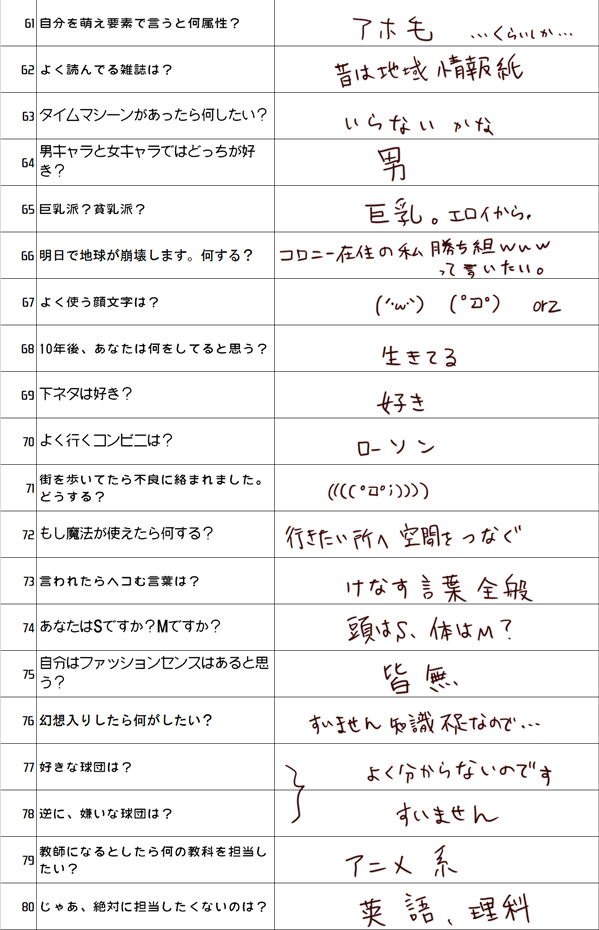 61 自分を萌え要素で言うと何属性？ アホ毛 …くらいしか…
62 よく読んでる雑誌は？ 昔は地域情報紙
63 タイムマシーンがあったら何したい？ いらないかな
64 男キャラと女キャラではどっちが好
き？ 男
65 巨乳派？貧乳派？ 巨乳。エロイから。
66 明日で地球が崩壊します。何する？ コロニー在住の私勝ち組www
って言いたい。
67 よく使う顔文字は？ (´･ω･`) (ﾟДﾟ) orz
68 10年後、あなたは何をしてると思う？ 生きてる
69 下ネタは好き？ 好き
70 よく行くコンビニは？ ローソン
71 街を歩いてたら不良に絡まれました。
どうする？ ((((ﾟДﾟ;))))
72 もし魔法が使えたら何する？ 行きたい所へ空間をつなぐ
73 言われたらヘコむ言葉は？ けなす言葉全般
74 あなたはSですか？Mですか？ 頭はS、体はM？
75 自分はファッションセンスはあると思
う？ 皆無
76 幻想入りしたら何がしたい？ すいません知識不足なので…
77 好きな球団は？ よく分からないのです
78 逆に、嫌いな球団は？ すいません
79 教師になるとしたら何の教科を担当し
たい？ アニメ系
80 じゃあ、絶対に担当したくないのは？ 英語、理科